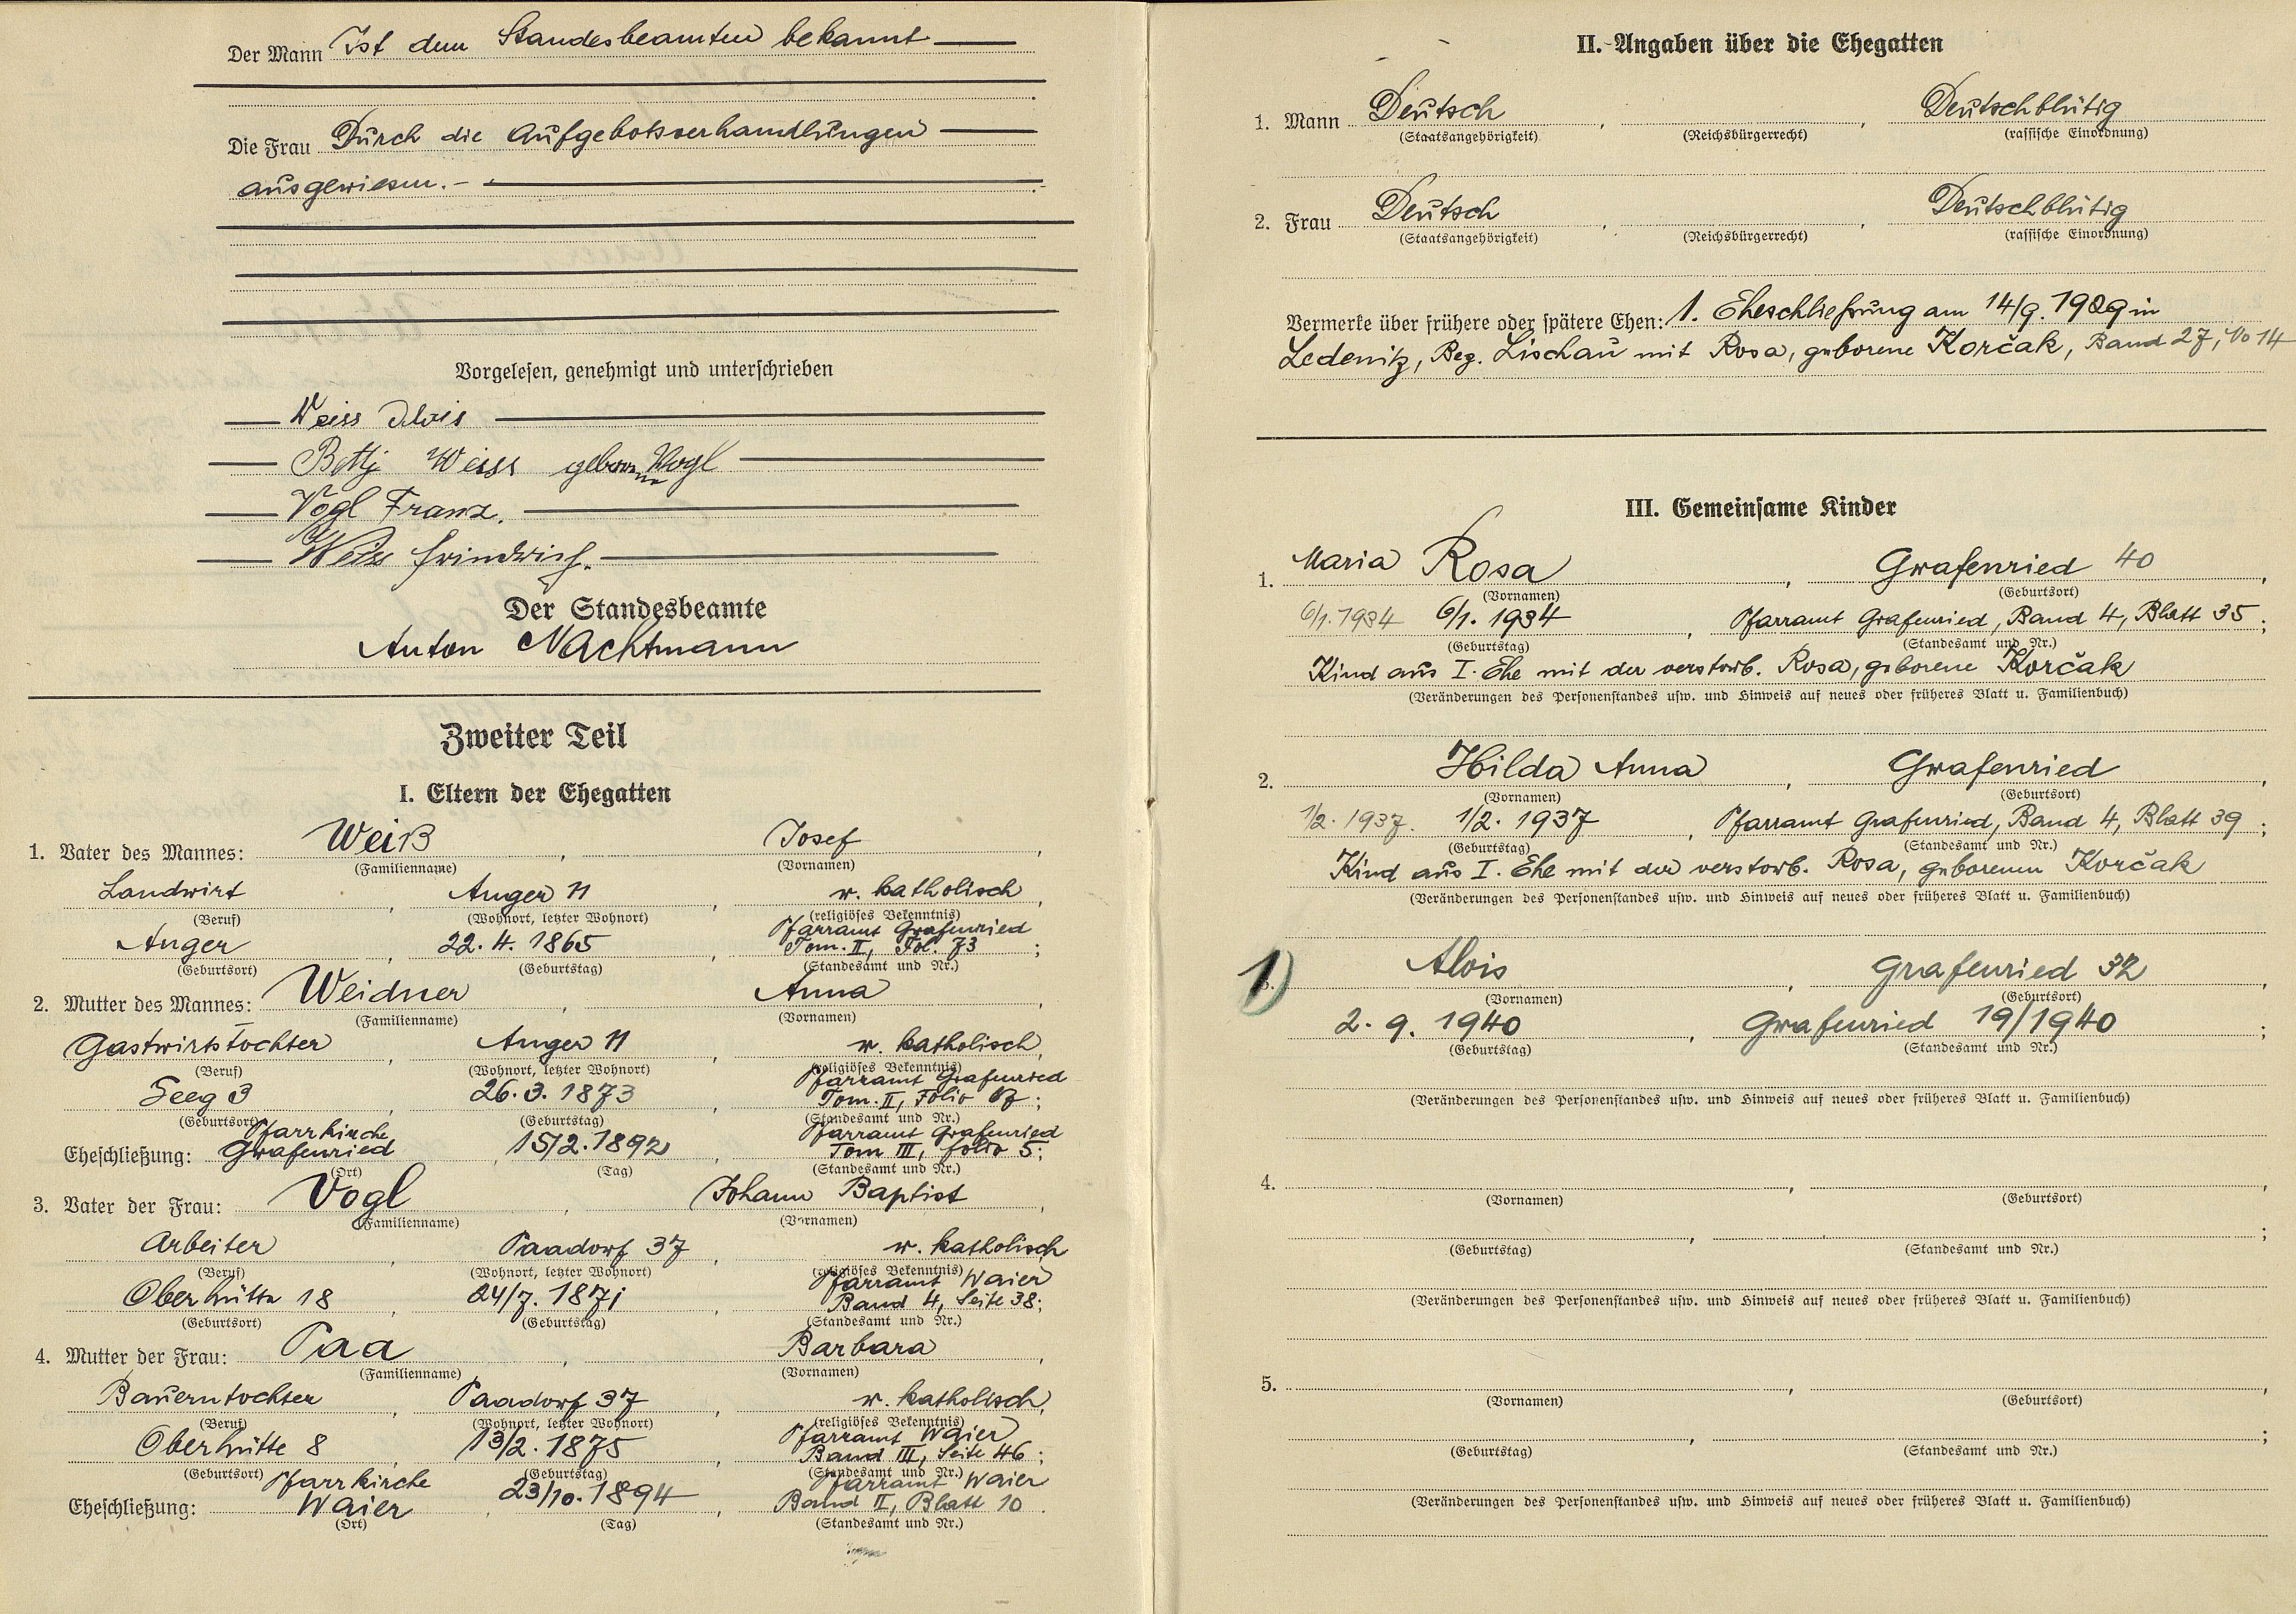 Der Mann Ist dem Standesbeamten bekannt
Die Frau Durch die Aufgebotsverhandlungen
ausgewiesen.-
Vorgelesen, genehmigt und unterschrieben
Weiss Alois
Betty Weiss geborene Vogl
Vogl Franz.
Weiss Friedrich.
Der Standesbeamte
Anton Nachtmann
Zweiter Teil
I. Eltern der Ehegatten
1. Vater des Mannes: Weiß, Josef,
(Familienname) (Vornamen)
Landwirt, Anger 11, r. katholisch,
(Beruf) (Wohnort, letzter Wohnort) (religiöses Bekenntnis)
Pfarramt Grafenried
Anger, 22.4.1865, Tom. II, Fol. 73;
(Geburtsort) (Geburtstag) (Standesamt und Nr.)
2. Mutter des Mannes: Weidner, Anna,
(Familienname) (Vornamen)
Gastwirtstochter, Anger 11, r. katholisch,
(Beruf) (Wohnort, letzter Wohnort) (religiöses Bekenntnis)
Pfarramt Grafenried
Seeg 3, 26.3.1873, Tom. II, Folio;
(Geburtsort) (Geburtstag) (Standesamt und Nr.)
Pfarrkirche Pfarramt Grafenried
Eheschließung: Grafenried, 15/2.1892, Tom III, folio 5;
(Ort) (Tag) (Standesamt und Nr.)
3. Vater der Frau: Vogl, Johann Baptist,
(Familienname) (Vornamen)
Arbeiter, Paadorf 37, r. katholisch
(Beruf) (Wohnort, letzter Wohnort) (religiöses Bekenntnis)
Pfarramt Waier
Oberhütte 18, 24/7.1871, Band 4, Seite 38;
(Geburtsort) (Geburtstag) (Standesamt und Nr.)
4. Mutter der Frau: Paa, Barbara,
(Familienname) (Vornamen)
Bauerntochter, Paadorf 37, r. katholisch,
(Beruf) (Wohnort, letzter Wohnort) (religiöses Bekenntnis)
Pfarramt Waier
Oberhütte 8, 13/2.1875, Band III, Seite 46;
(Geburtsort) (Geburtstag) (Standesamt und Nr.)
Pfarrkirche Pfarramt Waier
Eheschließung: Waier, 23/10.1894, Band II, Blatt 10.
(Ort) (Tag) (Standesamt und Nr.)
II. Angaben über die Ehegatten
1. Mann Deutsch, , Deutschblütig
(Staatsangehörigkeit) (Reichsbürgerrecht) (rassische Einordnung)
2. Frau Deutsch, , Deutschblütig
(Staatsangehörigkeit) (Reichsbürgerrecht) (rassische Einordnung)
Vermerke über frühere oder spätere Ehen: 1. Eheschließung am 14/9.1929 in
Ledenitz, Bez. Lischau mit Rosa, geborene Korčak, Band 27, No 14
III. Gemeinsame Kinder
1. Maria Rosa, Grafenried 40,
(Vornamen) (Geburtsort)
6/1.1934 6/1.1934, Pfarramt Grafenried, Band 4, Blatt 35;
(Geburtstag) (Standesamt und Nr.)
Kind aus I. Ehe mit der verstorb. Rosa, geborene Korčak
(Veränderungen des Personenstandes usw. und Hinweis auf neues oder früheres Blatt u. Familienbuch)
2. Hilda Anna, Grafenried,
(Vornamen) (Geburtsort)
1/2.1937. 1/2.1937, Pfarramt Grafenried, Band 4, Blatt 39;
(Geburtstag) (Standesamt und Nr.)
Kind aus I. Ehe mit der verstorb. Rosa, geborenen Korčak
(Veränderungen des Personenstandes usw. und Hinweis auf neues oder früheres Blatt u. Familienbuch)
1) 3. Alois, Grafenried 32,
(Vornamen) (Geburtsort)
2.9.1940, Grafenried 19/1940;
(Geburtstag) (Standesamt und Nr.)
(Veränderungen des Personenstandes usw. und Hinweis auf neues oder früheres Blatt u. Familienbuch)
4. , ,
(Vornamen) (Geburtsort)
, ;
(Geburtstag) (Standesamt und Nr.)
(Veränderungen des Personenstandes usw. und Hinweis auf neues oder früheres Blatt u. Familienbuch)
5. , ,
(Vornamen) (Geburtsort)
, ;
(Geburtstag) (Standesamt und Nr.)
(Veränderungen des Personenstandes usw. und Hinweis auf neues oder früheres Blatt u. Familienbuch)